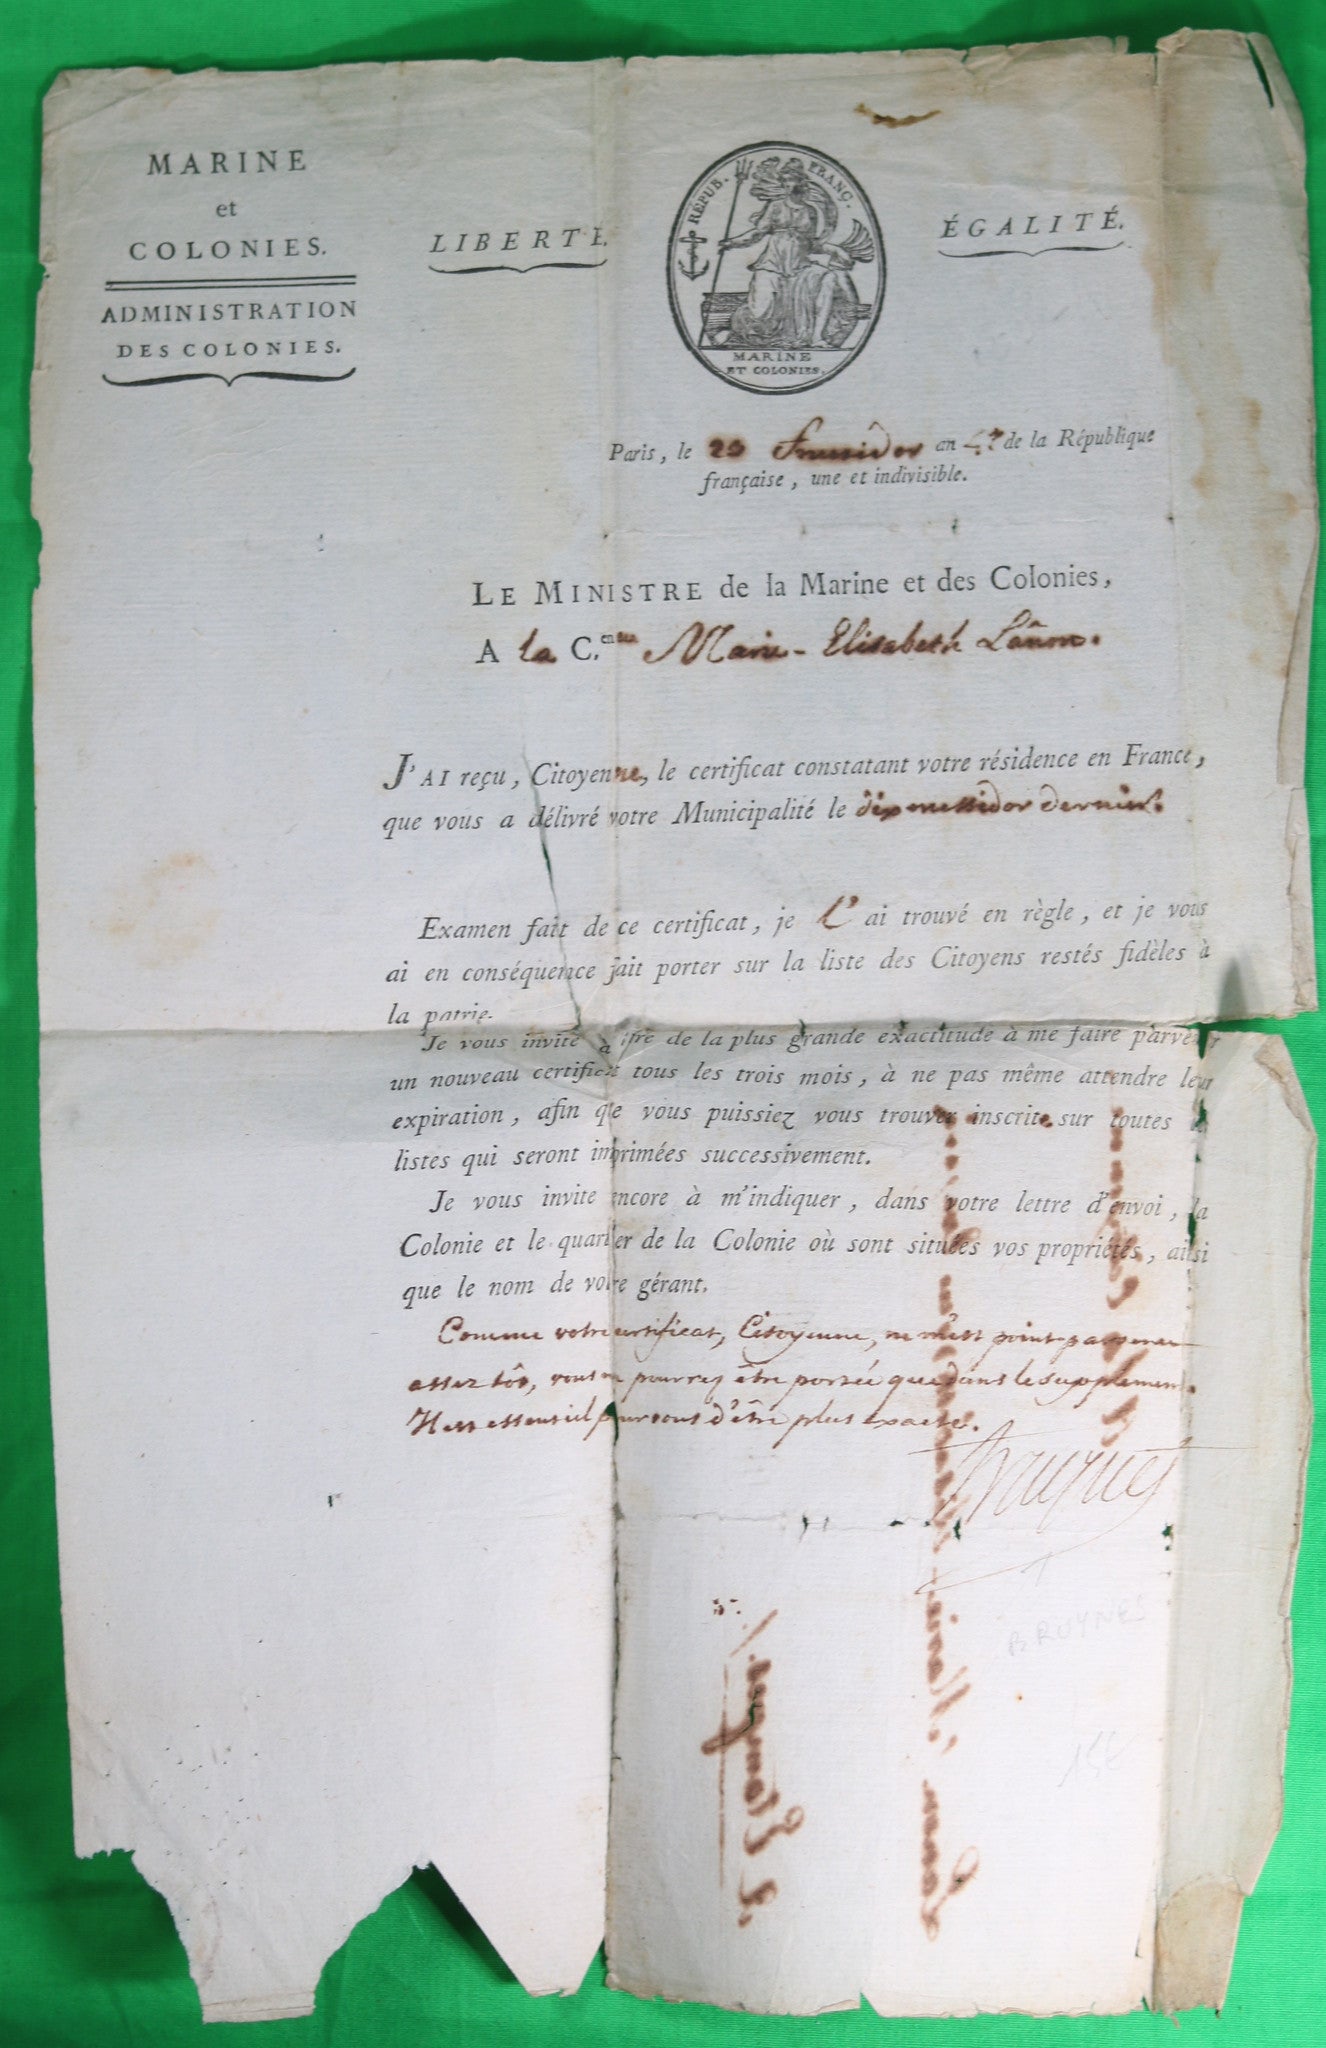 MARINE
et
COLONIES.
ADMINISTRATION
DES COLONIES.
LIBERTÉ.
RÉPUB. FRANÇ.
MARINE
ET COLONIES.
ÉGALITÉ.
Paris, le 29 an 4.e de la République
française, une et indivisible.
LE MINISTRE de la Marine et des Colonies,
A la C.enne Marie-Elisabeth
J'AI reçu, Citoyenne, le certificat constatant votre résidence en France,
que vous a délivré votre Municipalité le dix messidor dernier.
Examen fait de ce certificat, je l'ai trouvé en règle, et je vous
ai en conséquence fait porter sur la liste des Citoyens restés fidèles à
la patrie.
Je vous invite à être de la plus grande exactitude à me faire parvenir
un nouveau certificat tous les trois mois, à ne pas même attendre leur
expiration, afin que vous puissiez vous trouver inscrite sur toutes les
listes qui seront imprimées successivement.
Je vous invite encore à m'indiquer, dans votre lettre d'envoi, la
Colonie et le quartier de la Colonie où sont situées vos propriétés, ainsi
que le nom de votre gérant.
Comme votre certificat, Citoyenne, ne m'est point parvenu
assez tôt, vous ne pourrez être portée que dans le supplément.
Il est essentiel pour vous d'être plus exacte.
BRUYNES
15E